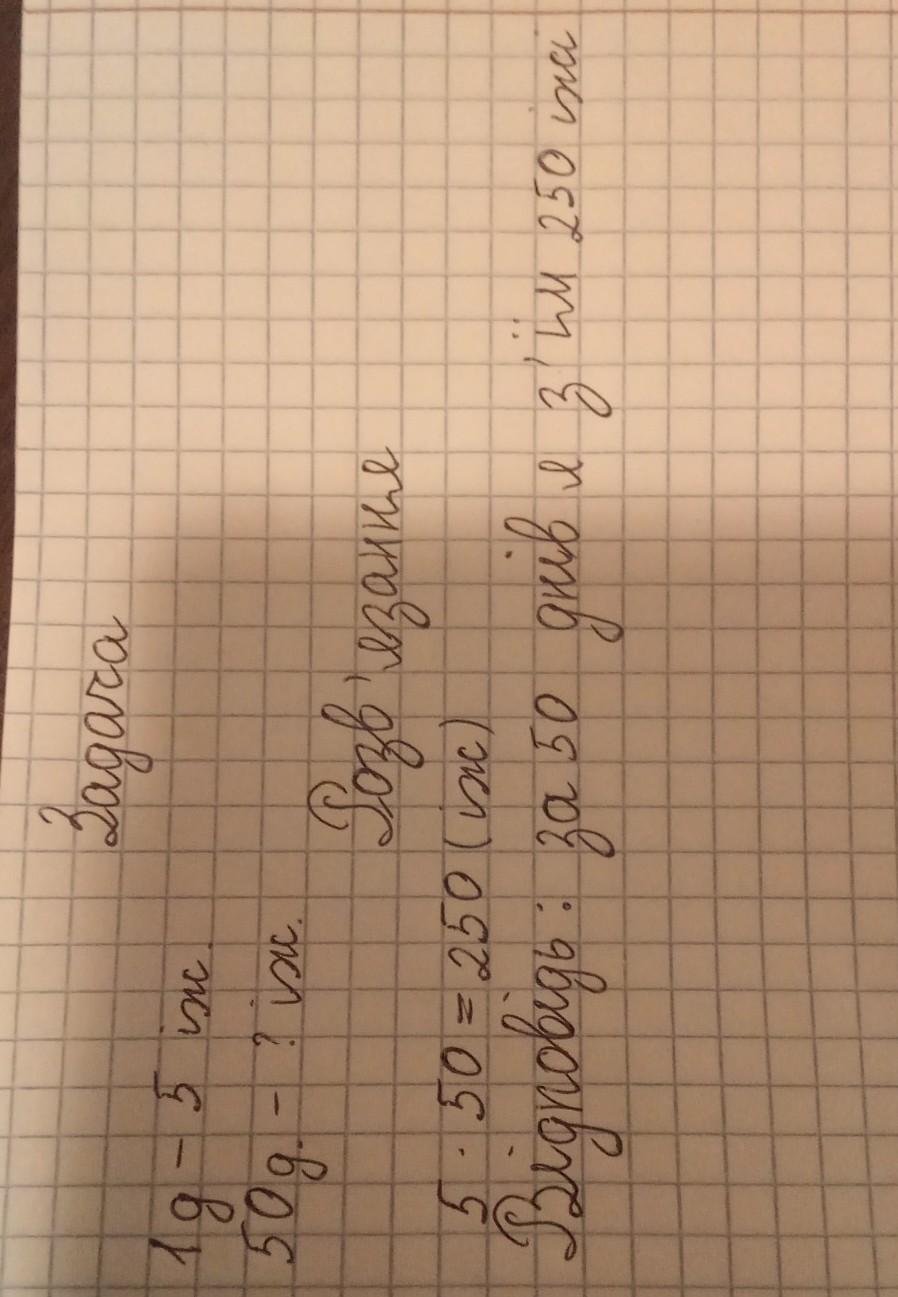 Задача
1 д – 5 їж.
50 д. – ? їж.
Розв'язання
5 · 50 = 250 (їж)
Відповідь: за 50 днів я з'їм 250 їжі